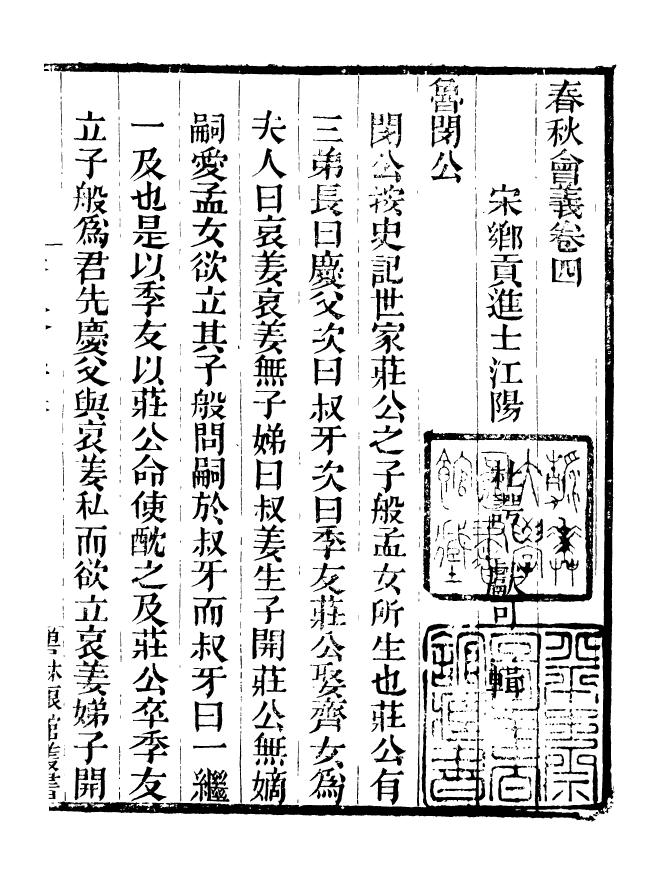 春秋會義卷四
宋鄉貢進士江陽杜諤獻可輯
魯閔公
閔公按史記世家莊公之子般孟女所生也莊公有
三弟長曰慶父次曰叔牙次曰季友莊公娶齊女爲
夫人曰哀姜哀姜無子娣曰叔姜生子開莊公無嫡
嗣愛孟女欲立其子般問嗣於叔牙而叔牙曰一繼
一及也是以季友以莊公命使酖之及莊公卒季友
立子般爲君先慶父與哀姜私而欲立哀姜娣子開